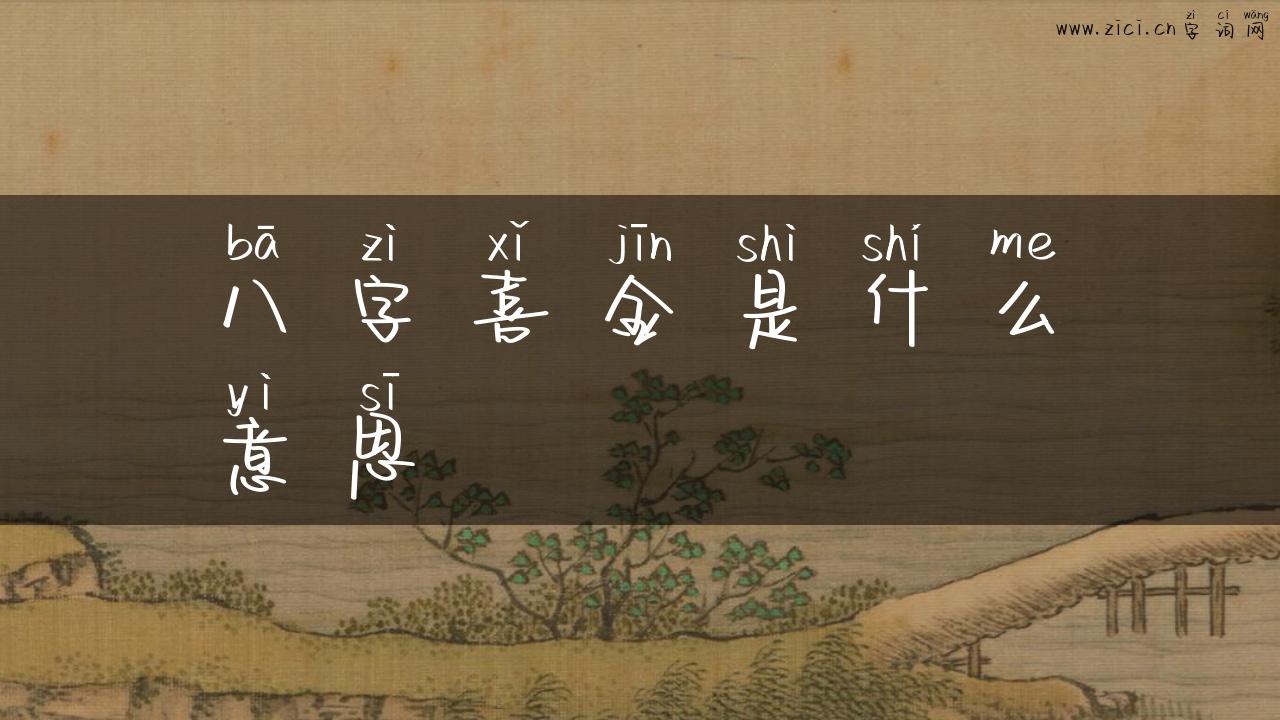 zì cí wǎng
www.zici.cn 字 词 网
bā zì xǐ jīn shì shí me
八 字 喜 金 是 什 么
yì sī
意 思